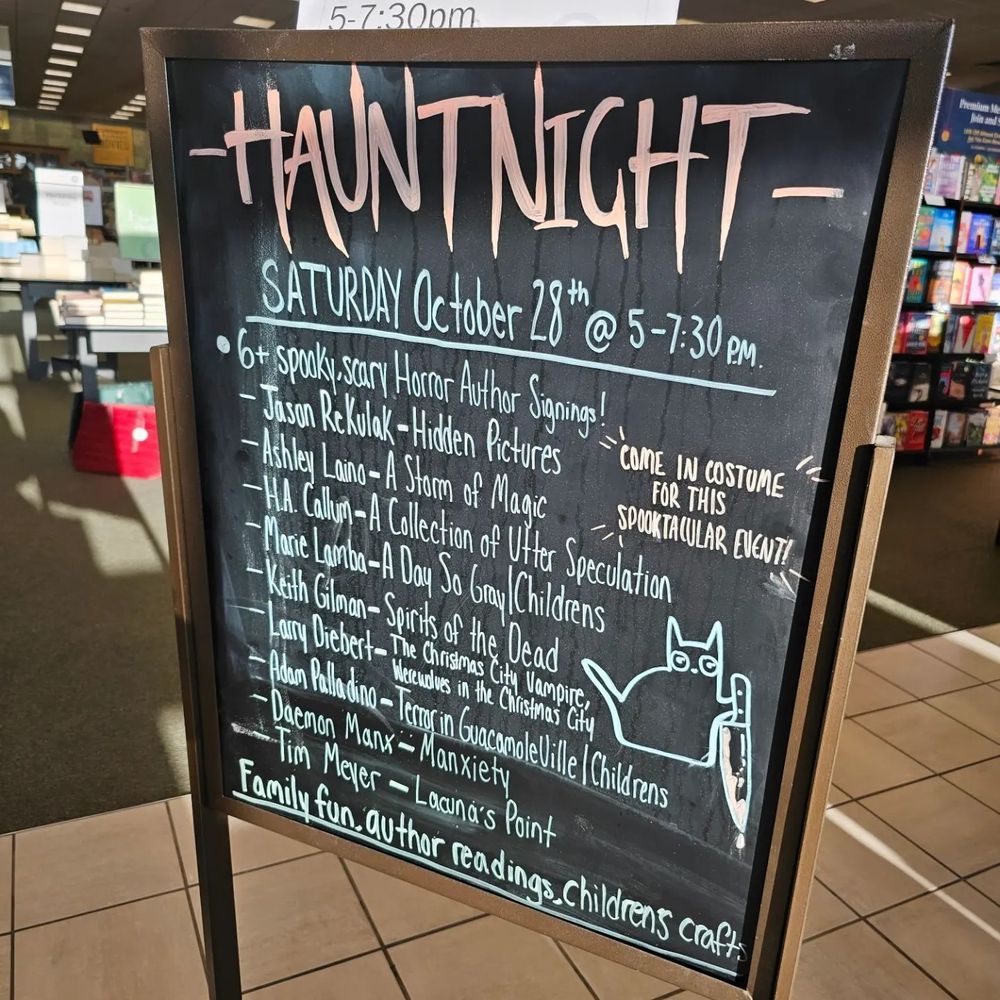 5-7:30pm
-HAUNT NIGHT-
SATURDAY October 28th @ 5-7:30 P.M.
• 6+ spooky, scary Horror Author Signings!
- Jason ReKulak - Hidden Pictures
- Ashley Laino - A Storm of Magic
- H.A. Callum - A Collection of Utter Speculation
- Marie Lamba - A Day So Gray | Childrens
- Keith Gilman - Spirits of the Dead
- Larry Diebert - The Christmas City Vampire,
Werewolves in the Christmas City
- Adam Palladino - Terror in GuacamoleVille | Childrens
- Daemon Manx - Manxiety
- Tim Meyer - Lacuna's Point
Family fun, author readings, Children's crafts
COME IN COSTUME
FOR THIS
SPOOKTACULAR EVENT!
Premium
Join and